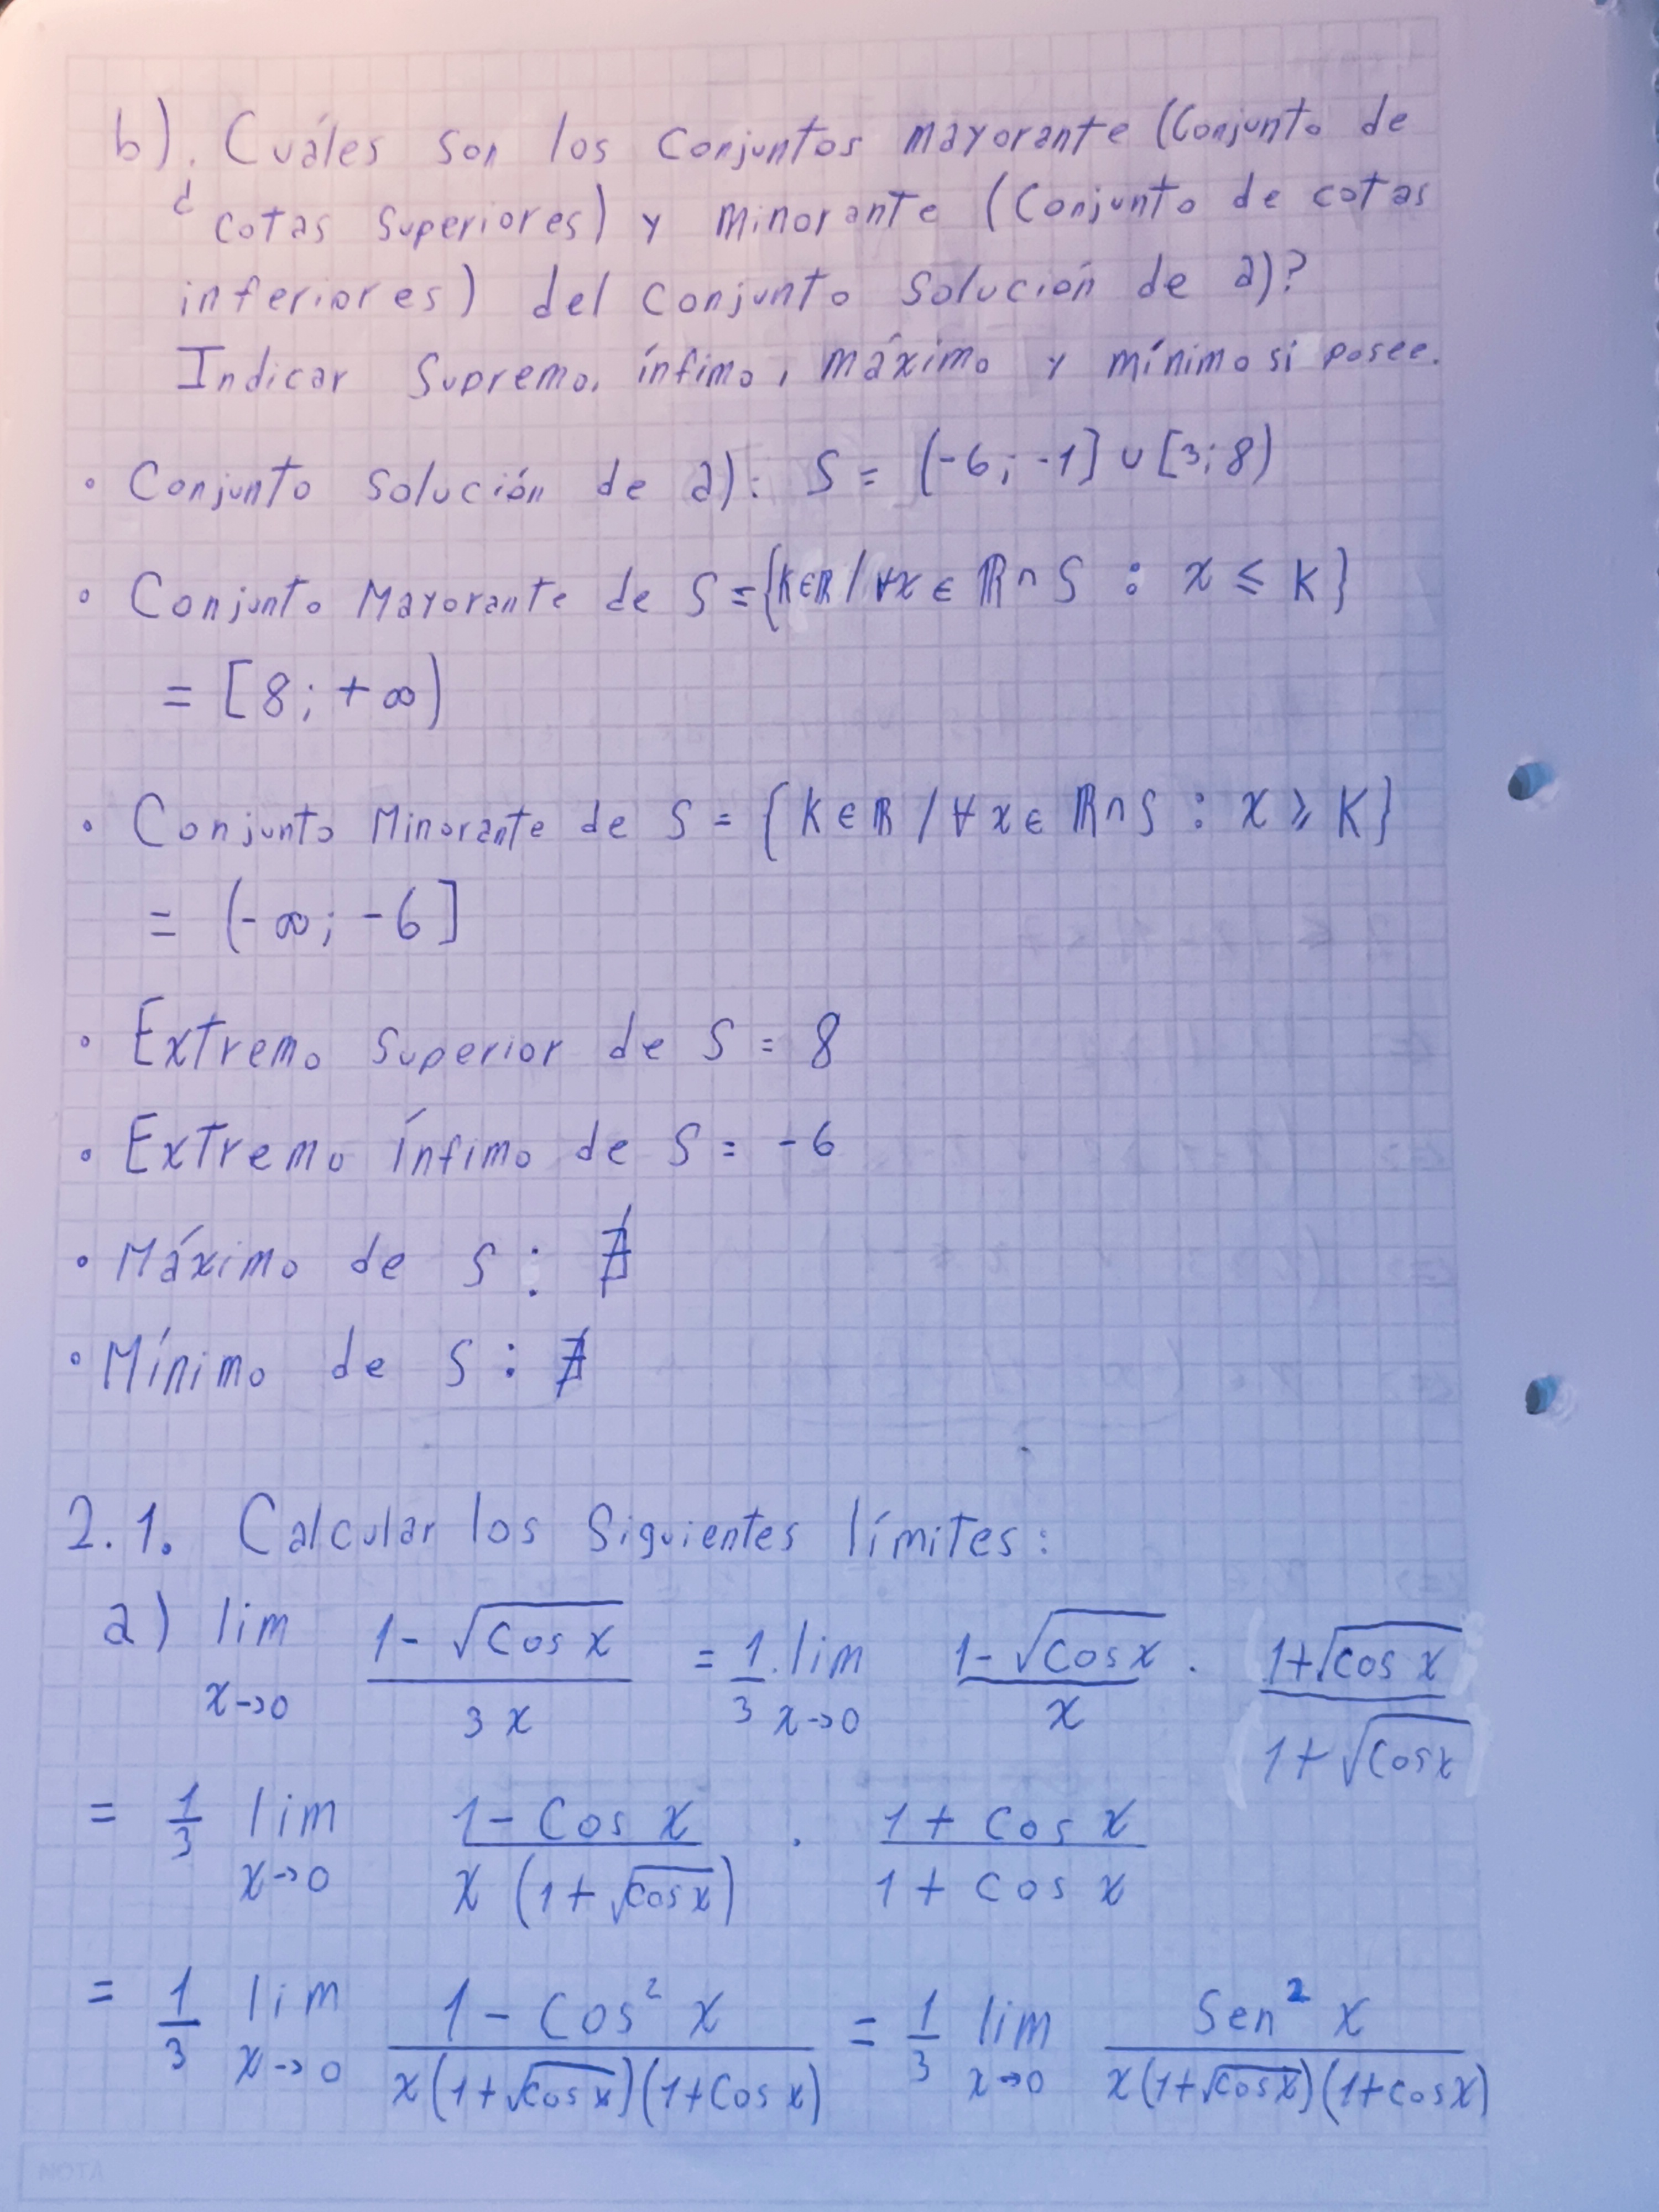 b). Cuáles son los conjuntos mayorante (Conjunto de
¿ cotas superiores) y minorante (Conjunto de cotas
inferiores) del conjunto solución de a)?
Indicar Supremo, ínfimo, máximo y mínimo si posee.
• Conjunto solución de a): S = (-6; -1] ∪ [3; 8)
• Conjunto Mayorante de S = {K∈ℝ / ∀x ∈ ℝ ∩ S : x ⩽ K}
= [8; +∞)
• Conjunto Minorante de S = {K∈ℝ / ∀x∈ ℝ∩S : x ⩾ K}
= (-∞; -6]
• Extremo Superior de S = 8
• Extremo ínfimo de S = -6
• Máximo de S : ∄
• Mínimo de S : ∄
2.1. Calcular los siguientes límites:
a) lim x→0 (1-√cos x)/(3x) = 1/3 . lim x→0 (1-√cos x)/x . (1+√cos x)/(1+√cos x)
= 1/3 lim x→0 (1-cos x)/(x(1+√cos x)) . (1+cos x)/(1+cos x)
= 1/3 lim x→0 (1-cos² x)/(x(1+√cos x)(1+cos x)) = 1/3 lim x→0 (Sen² x)/(x(1+√cos x)(1+cos x))
NOTA